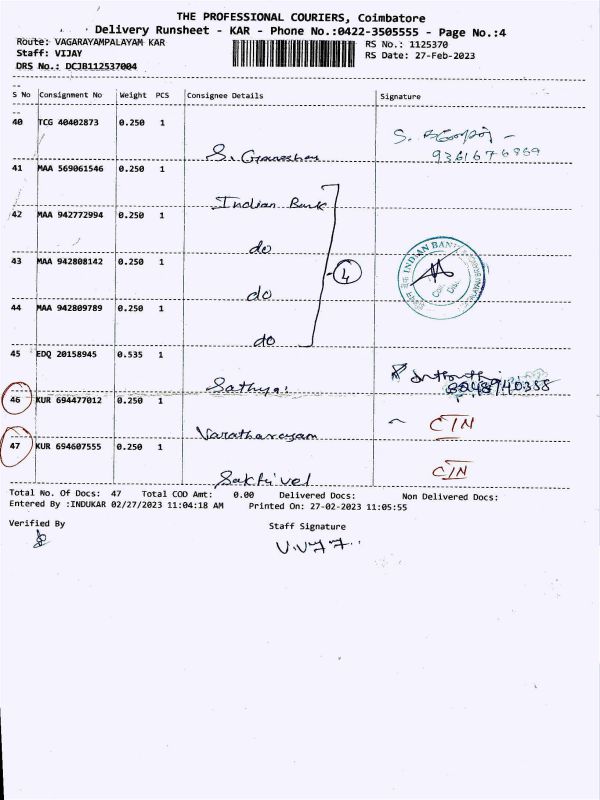 THE PROFESSIONAL COURIERS, Coimbatore
Delivery Runsheet - KAR - Phone No.:0422-3505555 - Page No.:4
Route: VAGARAYAMPALAYAM KAR
RS No.: 1125370
Staff: VIJAY
RS Date: 27-Feb-2023
DRS No.: DCJB112537004
S No Consignment No Weight PCS Consignee Details Signature
40 TCG 40402873 0.250 1
S.
9361676969
41 MAA 569061546 0.250 1
Indian Bank
42 MAA 942772994 0.250 1
do
43 MAA 942808142 0.250 1
4
INDIAN BANK
do
44 MAA 942809789 0.250 1
do
45 EDQ 20158945 0.535 1
Sathya
46 KUR 694477012 0.250 1
CTN
Varatharayam
47 KUR 694607555 0.250 1
CTN
Sakthivel
Total No. Of Docs: 47 Total COD Amt: 0.00 Delivered Docs: Non Delivered Docs:
Entered By :INDUKAR 02/27/2023 11:04:18 AM Printed On: 27-02-2023 11:05:55
Verified By Staff Signature